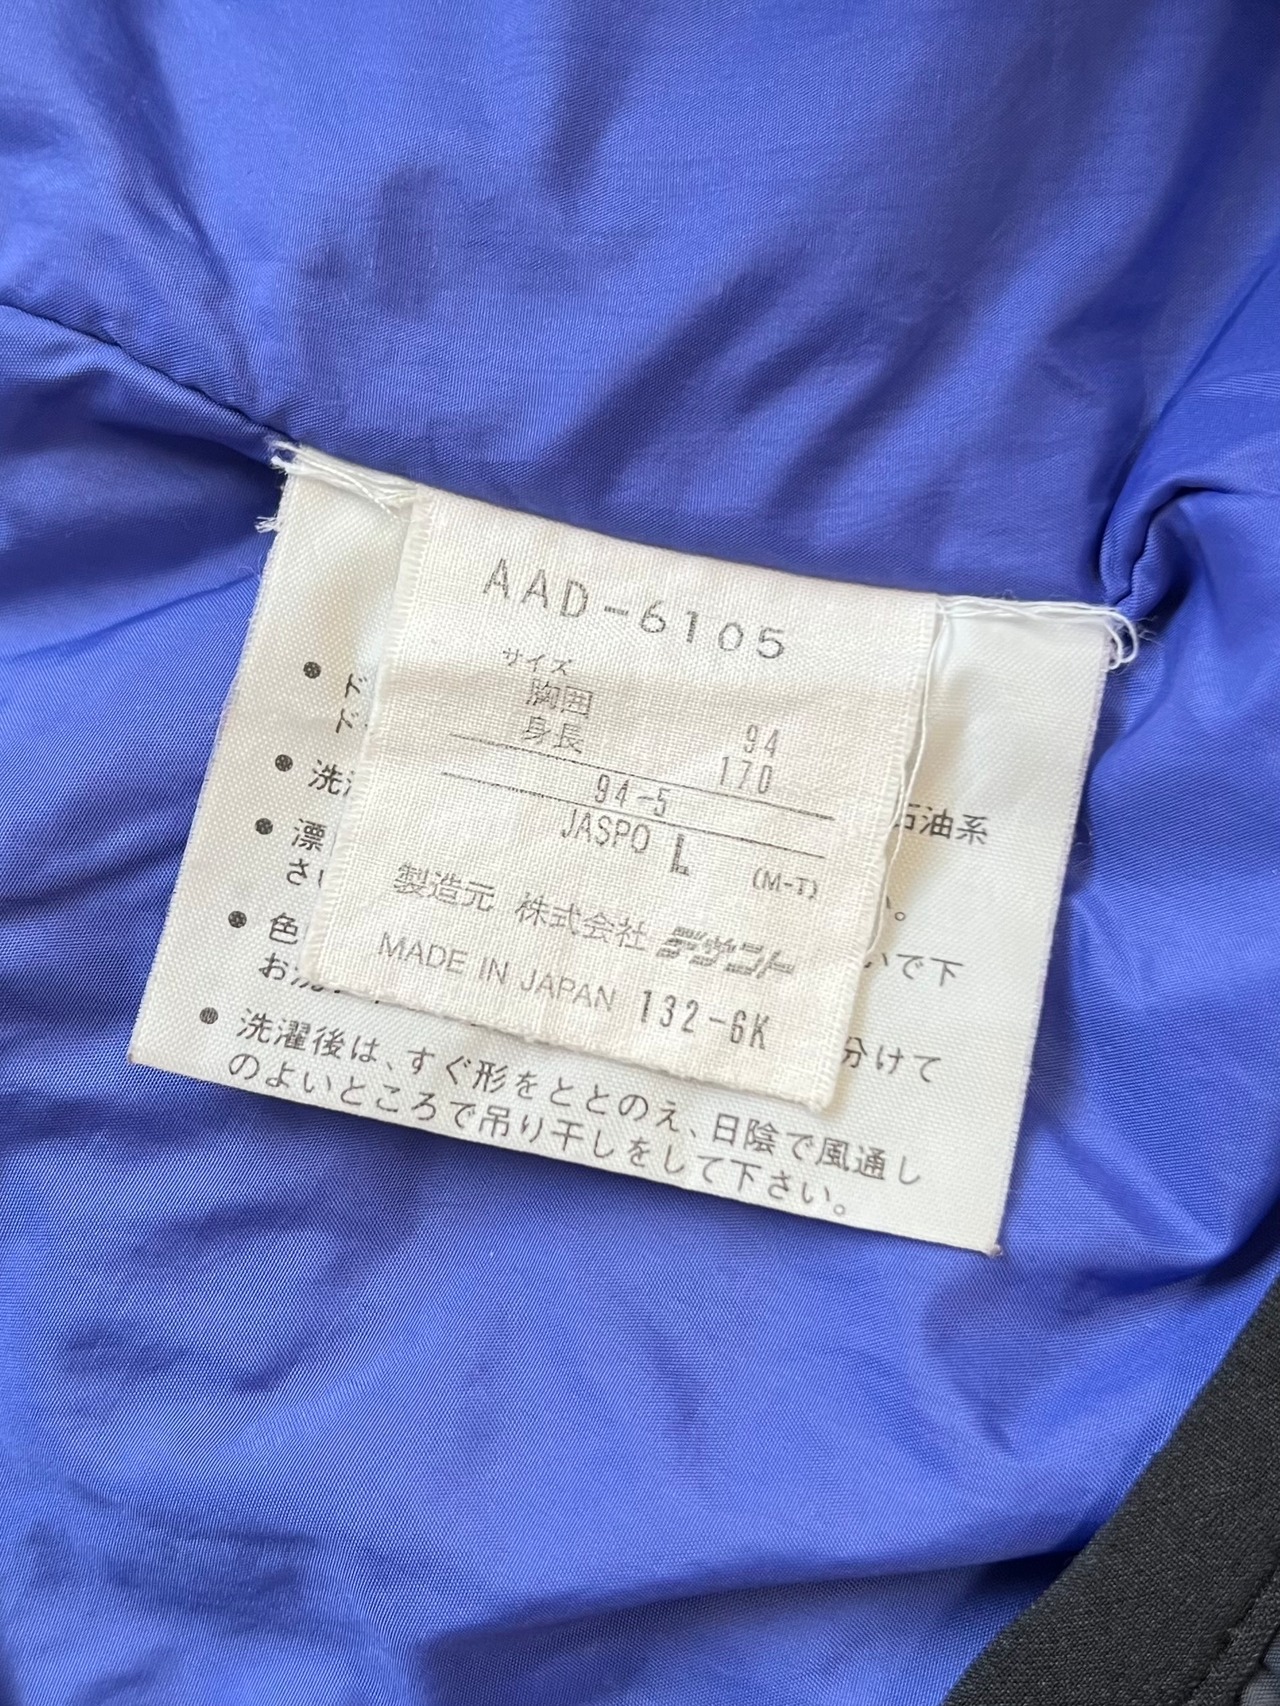 AAD-6105
サイズ
胸囲 94
身長 170
94-5
JASPO L (M-T)
製造元 株式会社 デサント
MADE IN JAPAN 132-6K
● 
● 洗 石油系
● 漂
さ い。
● 色 いで下
お洗 分けて
● 洗濯後は、すぐ形をととのえ、日陰で風通し
のよいところで吊り干しをして下さい。